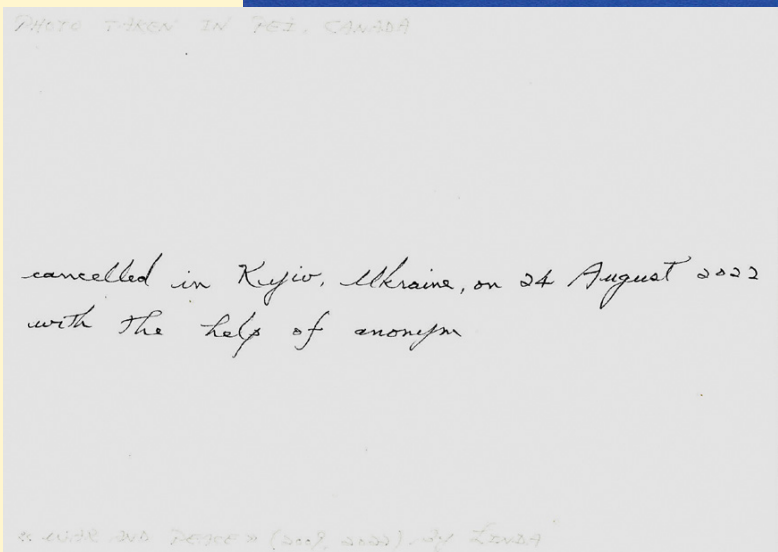 PHOTO TAKEN IN PEI, CANADA
cancelled in Kyiv, Ukraine, on 24 August 2022
with the help of anonym
« WAR AND PEACE » (2009, 2022), by LINDA